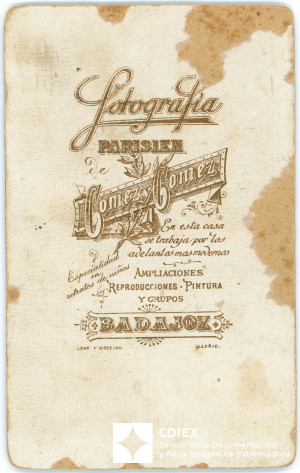 Fotografía
PARISIEN
de
Gomez y Gomez
En esta casa
se trabaja por los
adelantos mas modernos
Especialidad
en
retratos de niños
AMPLIACIONES
REPRODUCCIONES · PINTURA
Y GRUPOS
BADAJOZ
MADRID.
CDIEX
Centro de la Documentación
y de la Imagen de Extremadura